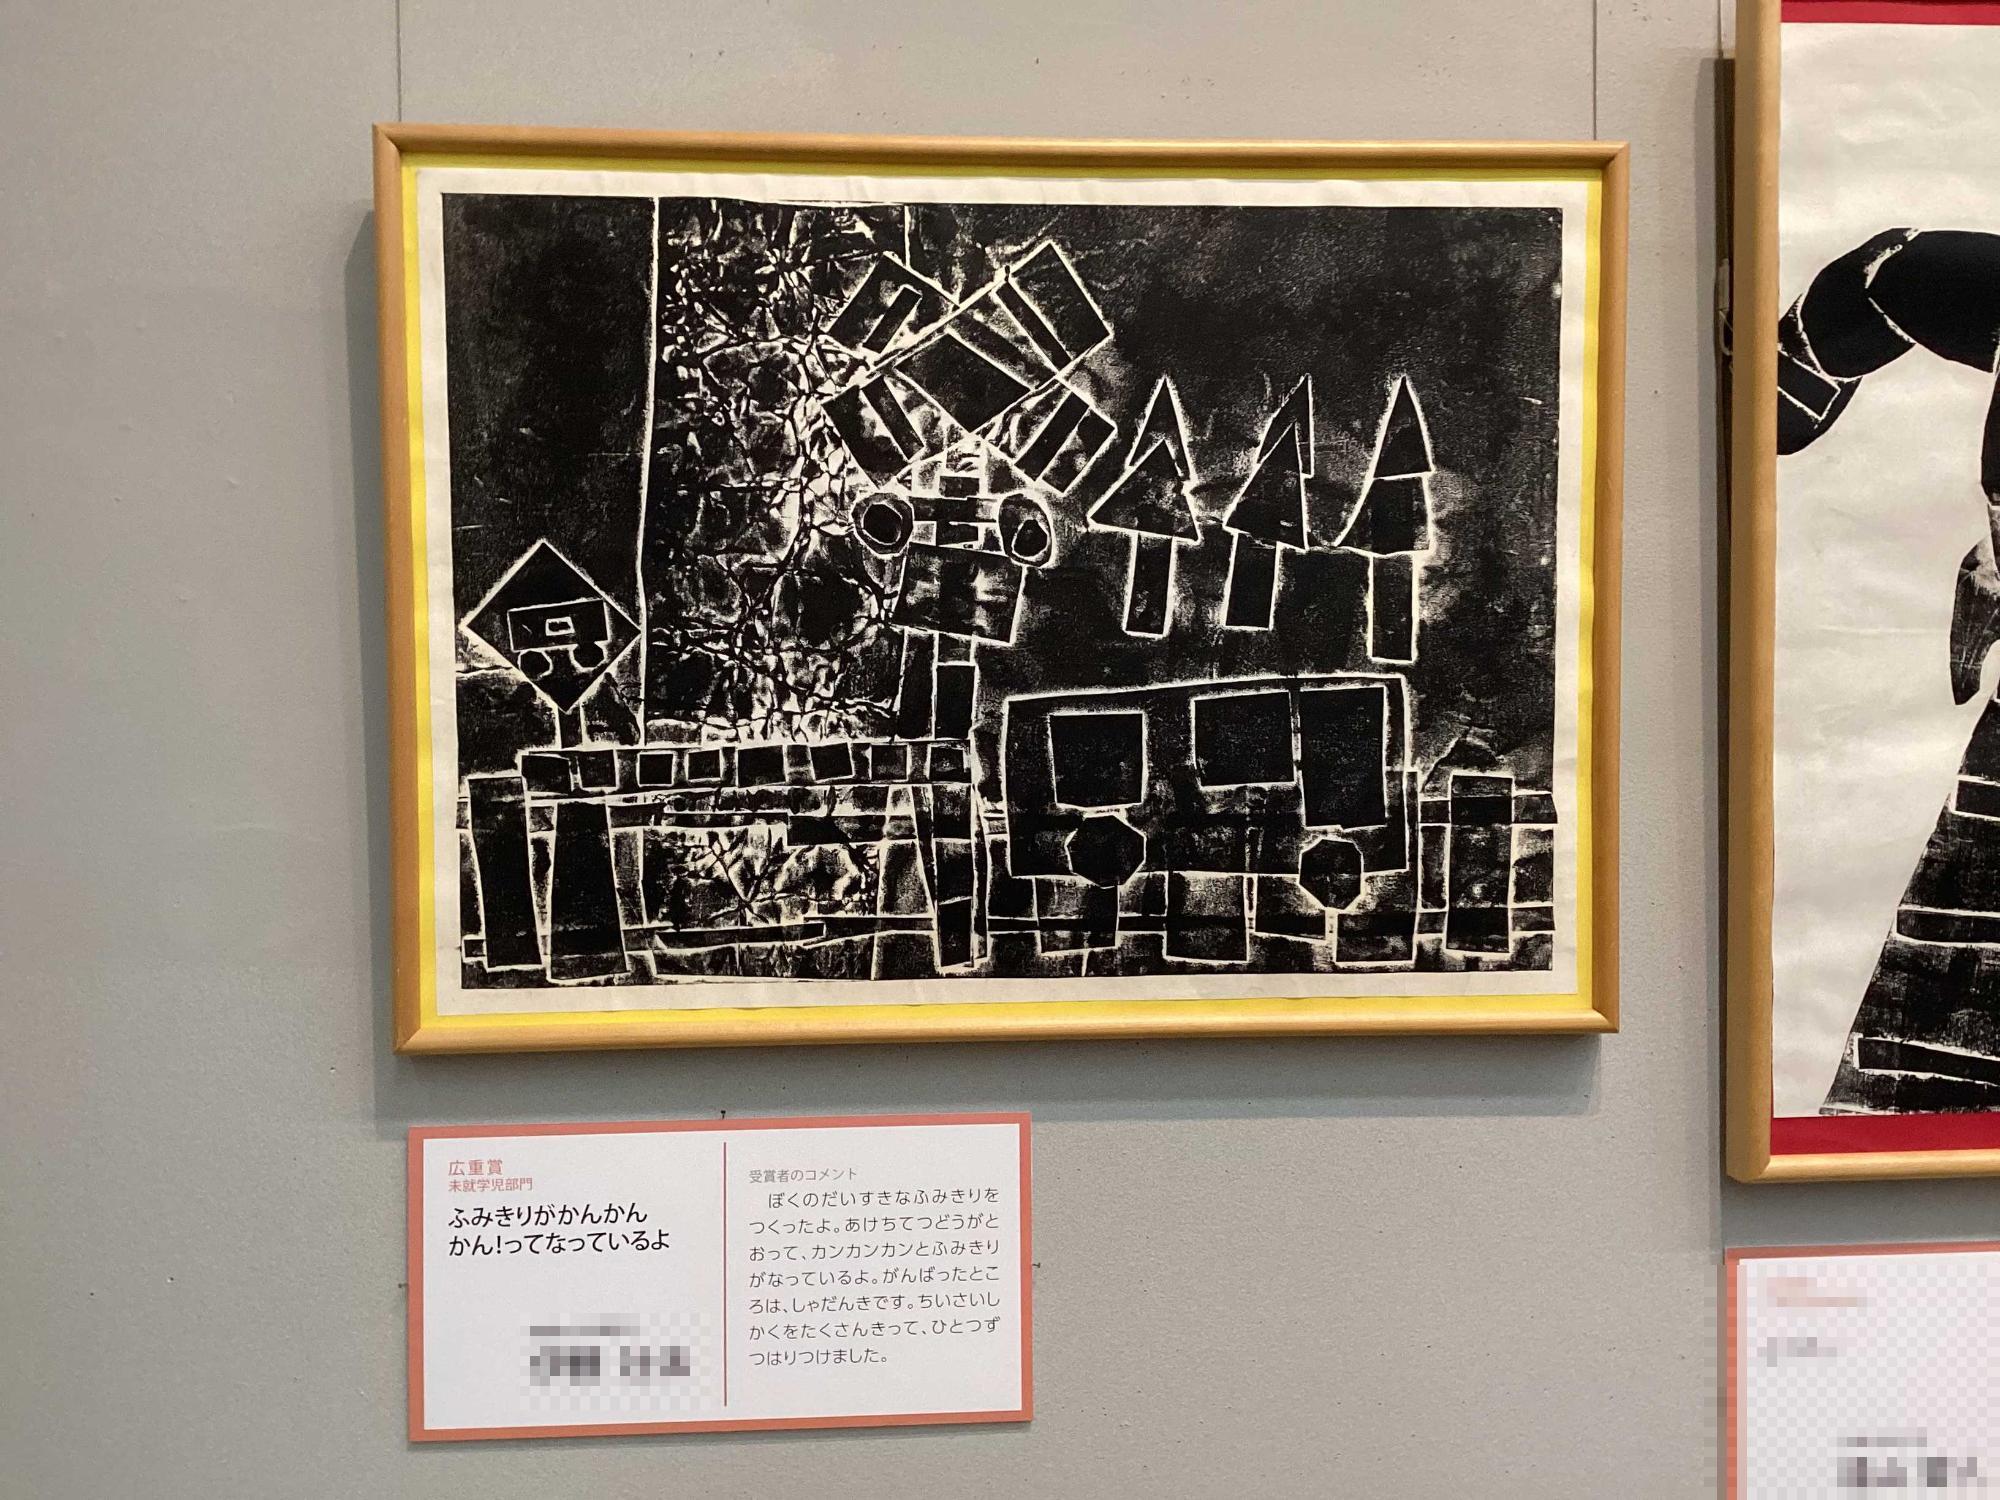 広重賞
未就学児部門
ふみきりがかんかん
かん！ってなっているよ
受賞者のコメント
ぼくのだいすきなふみきりを
つくったよ。あけちてつどうがと
おって、カンカンカンとふみきり
がなっているよ。がんばったとこ
ろは、しゃだんきです。ちいさいし
かくをたくさんきって、ひとつず
つはりつけました。